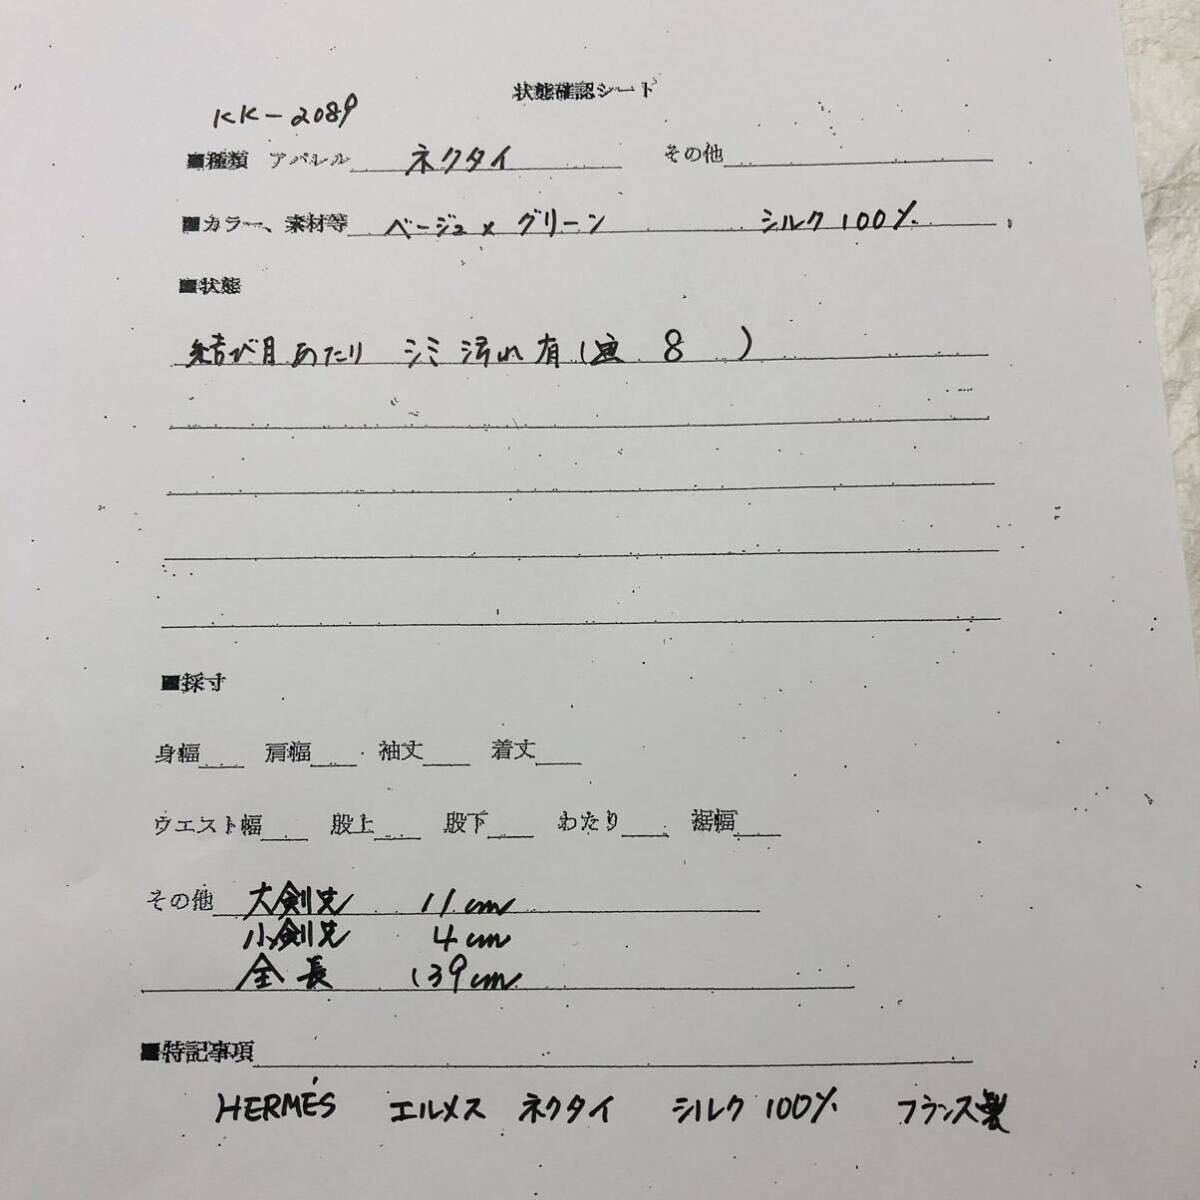 状態確認シート
KK-2089
■種類 アパレル ネクタイ その他
■カラー、素材等 ベージュ×グリーン シルク100%
■状態
結び目あたり シミ汚れ有( 8 )
■採寸
身幅 肩幅 袖丈 着丈
ウエスト幅 股上 股下 わたり 裾幅
その他 大剣先 11cm
小剣先 4cm
全長 139cm
■特記事項
HERMÉS エルメス ネクタイ シルク100% フランス製